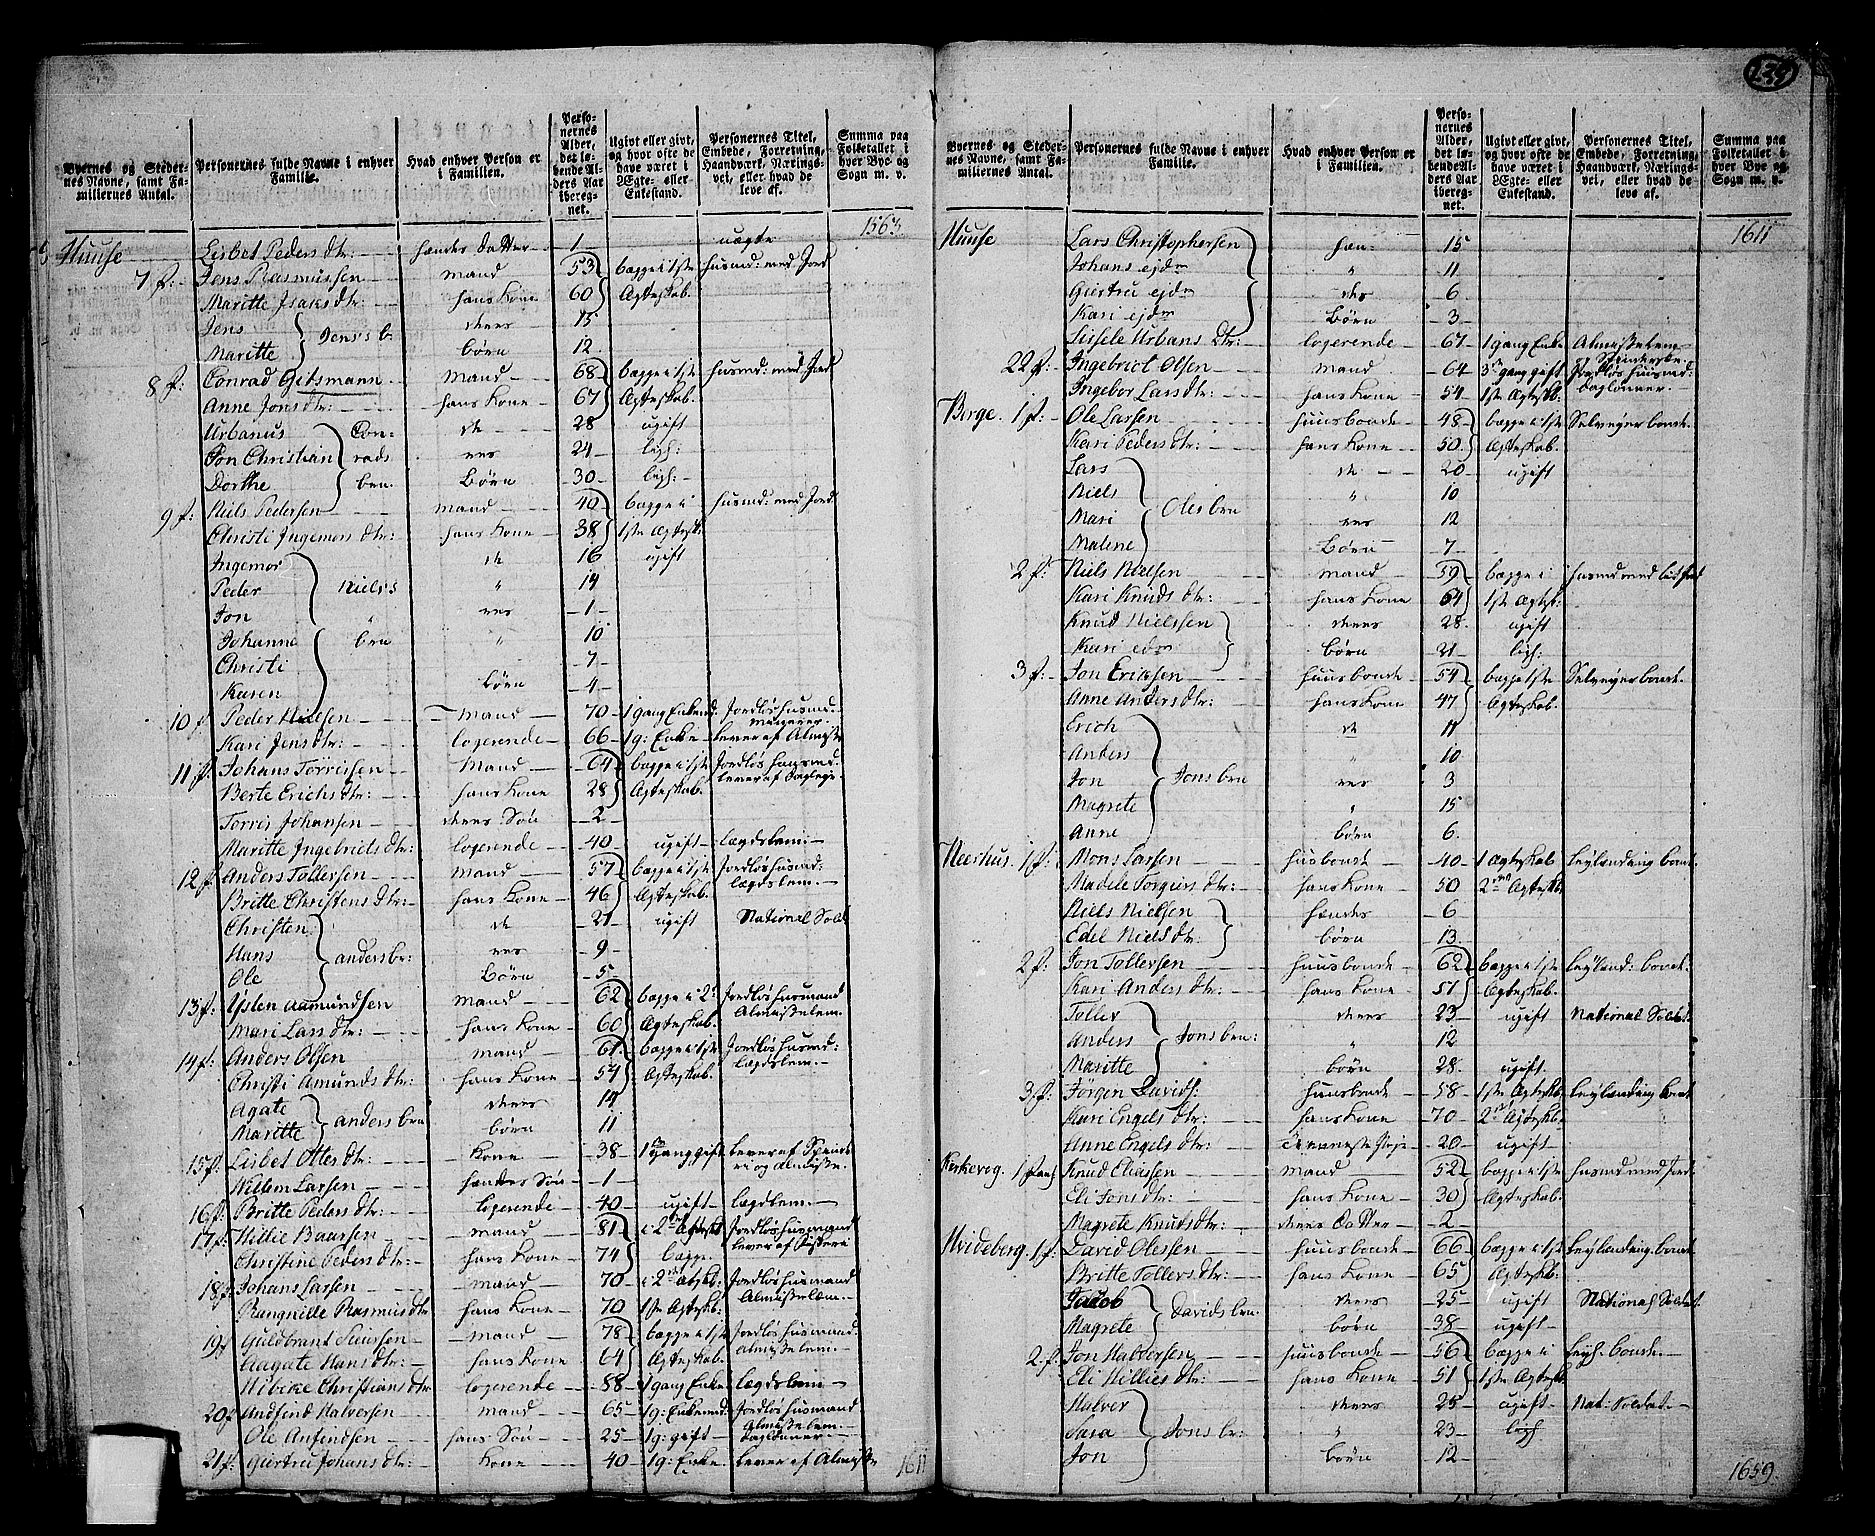 Byernes og Stedernes Navne, samt Familiernes Antal. | Personernes fulde Navne i enhver Familie. | Hvad enhver Person er i Familien. | Personernes Alder, det løbende Alders Aar iberegnet. | Ugivt eller givt, og hvor ofte de have været i Ægte- eller Enkestand. | Personernes Titel, Embede, Forretning, Haandværk, Næringsvei, eller hvad de leve af. | Summa paa Folketallet i hver Bye og Sogn m. v.
1563
Huuse Lisbet Peders dtr: hendes datter 1 uægte
7 f: Jens Rasmussen mand 53 begge i 1ste husmd: med Jord
Maritte Isaks dtr: hans Kone 60 Ægteskab.
Jens } Jens's b. deres 15
Maritte børn 12
8 f: Conrad Gitsmann mand 68 begge i 1ste husmd: med Jord
Anne Jons dtr: hans Kone 67 Ægteskab.
Urbanus Con= de 28 ugift
Jon Christian rads res 24 ligs:
Dorthe bren. Børn 30 ligs:
9 f: Niels Pedersen mand 40 begge i husmd: med Jord
Christi Ingemors dtr: hans Kone 38 1ste Ægtesk:
Ingemor de 16 ugift
Peder Niels's " 14
Jon " res 1
Johanne bren " 10
Christi 7
Karen børn 4
10 f: Peder Nielsen mand 70 1 gang Enkemd. Jordløs husmd.
Kari Jens dtr: logerende 66 1 g: Enke lever af Almisse
11 f: Johans Torrissen Mand 64 begge i 1ste Jordløs husmd
Berte Erichs dtr: hans Kone 28 Ægteskab.
Torris Johansen deres Søn 2
Maritte Ingebricts dtr: logerende 40 ugift lægdslem:
12 f: Anders Tollersen mand 57 begge i 1ste Jordløs husmd:
lægdslem.
Britte Christens dtr: hans Kone 46 Ægteskab.
Christen de 21 ugift National Sold:
Hans } anders br: res 9
Ole Børn 5
13 f: Ysten Aamundsen mand 62 begge i 2d Jordløs husmand
Almisselem.
Mari Lars dtr: hans Kone 60 Ægteskab.
14 f: Anders Olsen mand 61 begge i 1ste Jordløs husmd:
lægdslem.
Christi Amunds dtr: hans Kone 54 Ægteskab.
Agate } anders bren deres 14
Maritte børn 11
15 f: Lisbet Ottes dtr: Kone 38 1 gang gift lever af Spinde
ri og Almisse.
Willem Larsen hendes Søn 1
16 f: Britte Peders dtr: logerende 40 ugift lægdslem:
17 f: Hillie Baarsen mand 81 i 2det Ægtesk Jordløs husmand
lever af Fiskeri
Christine Peders dtr: hans Kone 74 begge
18 f: Johans Larsen mand 70 i 2det Jordløs husmand
Almisselem.
Rangnille Rasmus dtr hans Kone 70 1ste Ægtesk:
19 f Guldbrant Siurssen mand 78 begge i 1ste Jordløs husmand.
Almisselem.
Aagate Hans dtr: hans Kone 64 Ægteskab.
Wibeke Christians dtr logerende 88 1 gang Enke lægdslem
20 f Andfind Halversen mand 65 1 g: Enkemd: Jordløs husmand
Almisselem.
Ole Anfindsen hans Søn 25 1 g: gift Daglønner
21 f: Giertru Johans dtr: Kone 40 1 g: Enke lever af Almisse
1611
Byernes og Stedernes Navne, samt Familiernes Antal. | Personernes fulde Navne i enhver Familie. | Hvad enhver Person er i Familien. | Personernes Alder, det løbende Alders Aar iberegnet. | Ugivt eller givt, og hvor ofte de have været i Ægte- eller Enkestand. | Personernes Titel, Embede, Forretning, Haandværk, Næringsvei, eller hvad de leve af. | Summa paa Folketallet i hver Bye og Sogn m. v.
1611
Huuse Lars Christophersen 15
Johans ejdm " 11
Giertru ejdm des 6
Kari ejdm Børn 3
Sissele Urbans dtr: logerende 67 1 gang Enke Almisselem
22 f: Ingebrict Olsen mand 64 3de gang gift Jordløs husmd:
Daglønner.
Ingebor Lars dtr: hans Kone 54 1ste Ægtesk:
Berge. 1 f: Ole Larsen huusbonde 48 begge i 1ste Selveyer bonde.
Kari Peders dtr: hans Kone 50 Ægteskab.
Lars de 20 ugift
Niels " 10
Mari } Oles bren res 12
Malene Børn 7
2 f: Niels Nielsen mand 59 begge i husmd med lidt Jord
Kari Knuds dtr: hans Kone 64 1ste Ægtesk:
Knud Nielssen deres 28 ugift
Kari ejdm børn 21 ligs:
3 f: Jon Ericksen huusbonde 54 begge i 1ste Selveyer bonde.
Anne Anders dtr: hans Kone 47 Ægteskab.
Erich de 11
Anders " 10
Jon } Jons bren res 3
Magrete " 15
Anne børn 6
Neeshus. 1 f: Mons Larsen husbonde 40 1 Ægteskab leylænding bond.
Madele Torgiers dtr: hans Kone 50 2det Ægtesk:
Niels Nielsen hendes 6
Edel Niels dtr: børn 13
2 f: Jon Tollersen huusbonde 62 begge i 1ste leylænd: bonde:
Kari Anders dtr: hans Kone 51 Ægteskab.
Toller deres 23 ugift National Soldat.
Anders } Jons bren: " 12
Maritte børn 28 ugift
3 f: Jörgen Davids: huusbonde 58 1ste Ægteskb: leylænding bond
Kari Engels dtr: hans Kone 70 2det Ægteskb.
Anne Engels dtr: tieneste Pige 20 ugift
Kirkevog. 1 fam: Knud Eliassen mand 52 begge i 1ste husmd med Jord
Eli Jons dtr: hans Kone 30 Ægteskab.
Magrete Knuds dtr: deres datter 2
Hvideberg. 1 f: David Olessen huusbonde 66 begge i 1ste leylænding bonde
Britte Tollers dtr: hans Kone 65 Ægteskb:
Jacob } Davids bren. deres 25 ugift National Soldat.
Magrete børn 38 ugift
2 f: Jon Halversen huusbonde 56 begge i leyl. bonde.
Eli Hillies dtr: hans Kone 51 1ste Ægtesk
Halver deres 25 ugift Nat: Soldat
Sara } Jons br: " 23 ligs
Jon børn 12
1659.